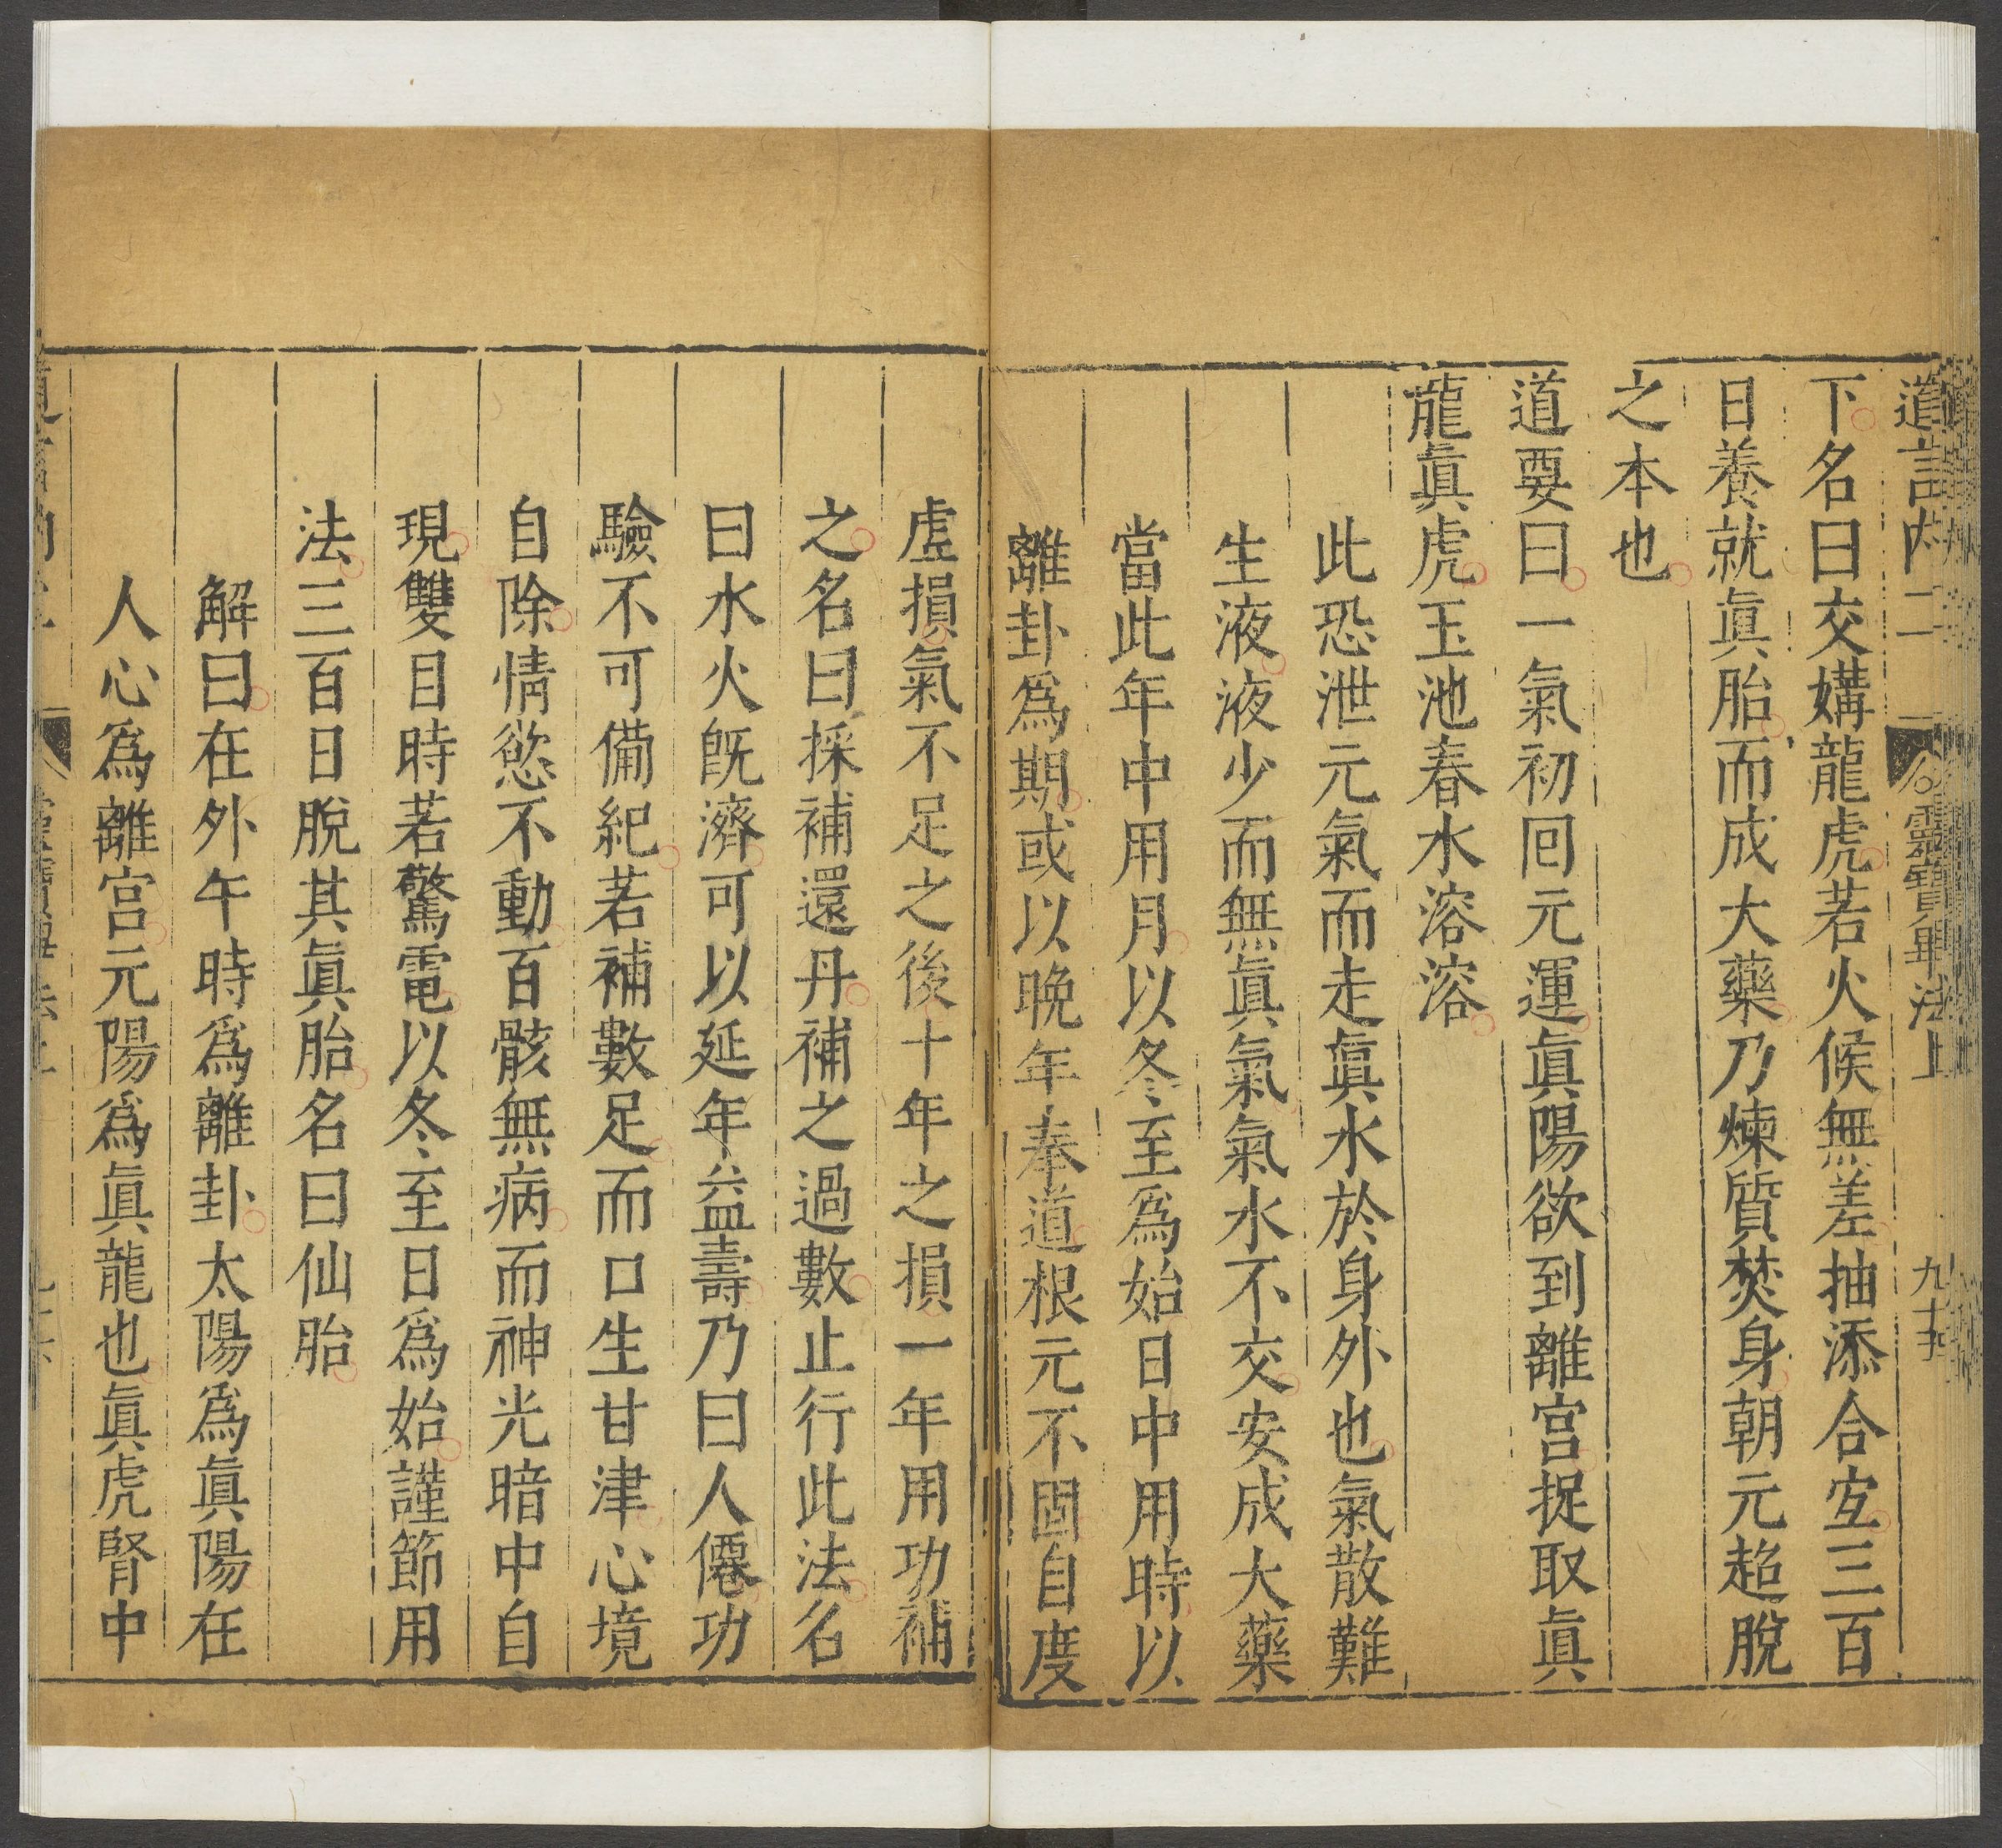 道言內二　靈寶畢法上　九十五
下名曰交媾龍虎若火候無差抽添合宜三百
日養就眞胎而成大藥乃煉質焚身朝元超脫
之本也
道要曰一氣初回元運眞陽欲到離宮捉取眞
龍眞虎玉池春水溶溶
此恐泄元氣而走眞水於身外也氣散難
生液液少而無眞氣氣水不交安成大藥
當此年中用月以冬至爲始日中用時以
離卦爲期或以晚年奉道根元不固自度
虛損氣不足之後十年之損一年用功補
之名曰採補還丹補之過數止行此法名
曰水火旣濟可以延年益壽乃曰人僊功
驗不可備紀若補數足而口生甘津心境
自除情慾不動百骸無病而神光暗中自
現雙目時若驚電以冬至日爲始謹節用
法三百日脫其眞胎名曰仙胎
解曰在外午時爲離卦太陽爲眞陽在
人心爲離宮元陽爲眞龍也眞虎腎中